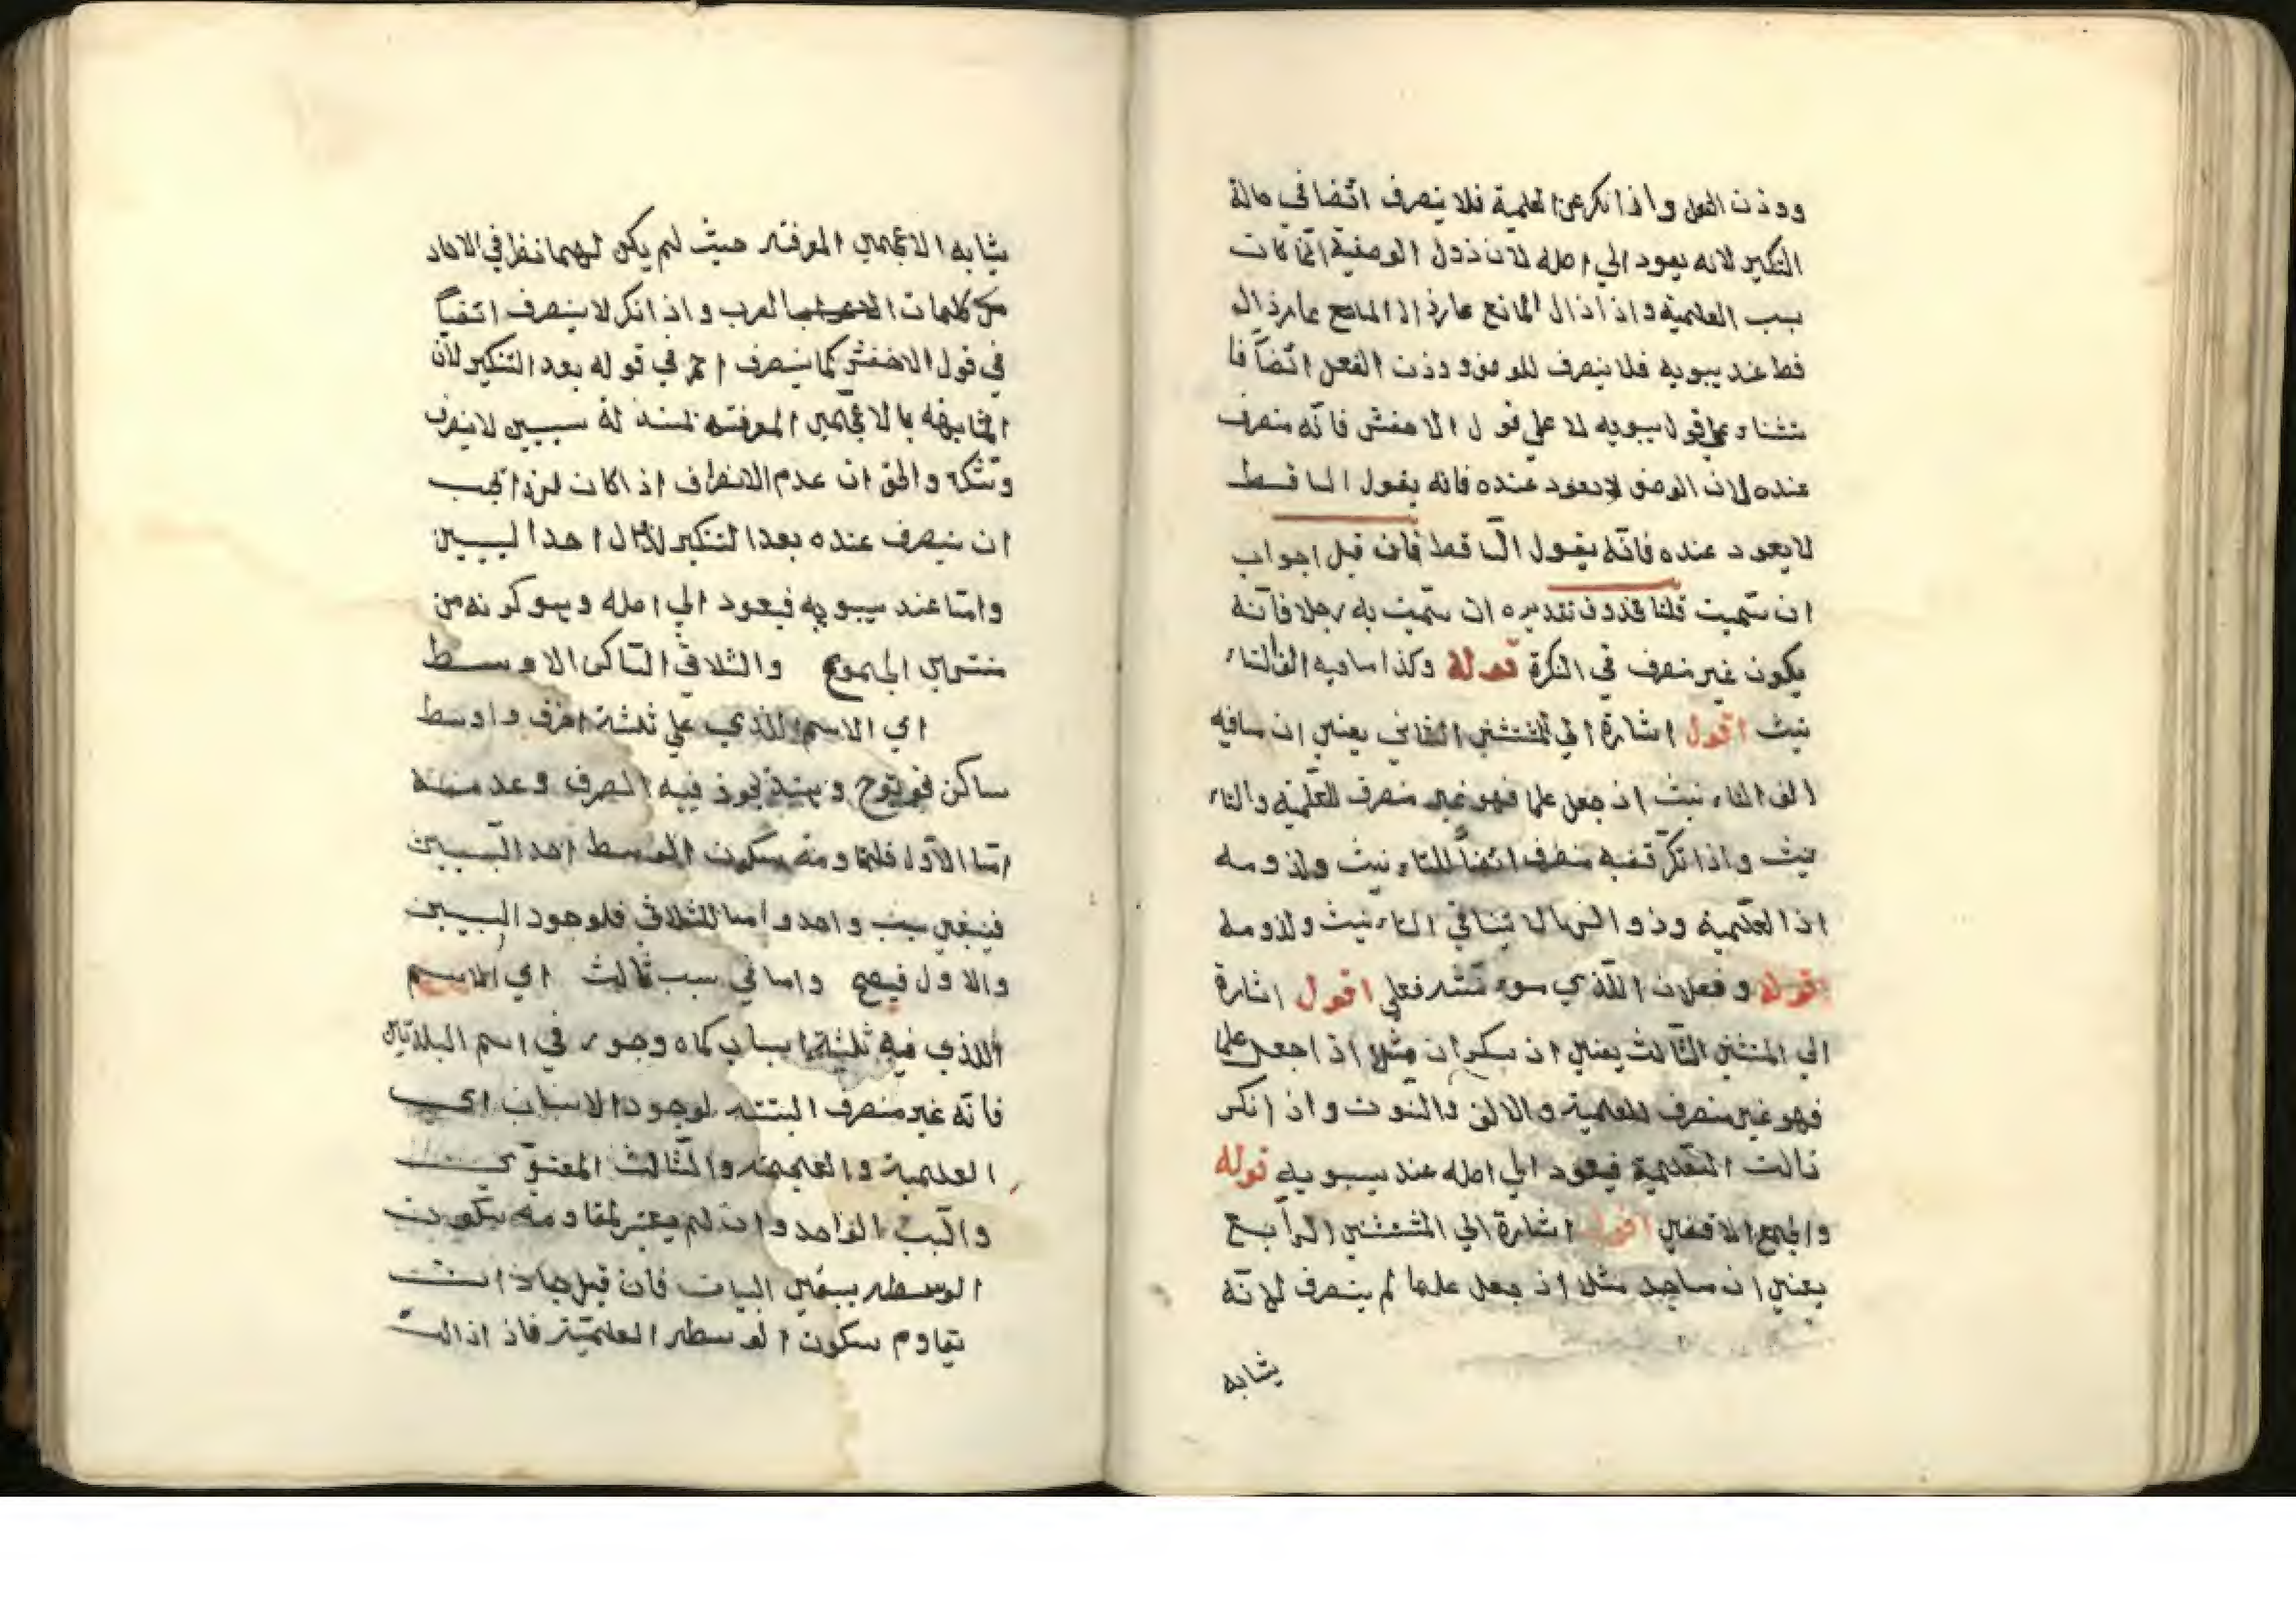 ووزن الفعل واذا نكر عن العلمية فلا ينصرف اتضا في حالة
التكير لانه يعود الي اصله لان زول الوصفية انما كانت
بسبب العلمية واذا زال المانع
قط عند يبويه فلا ينصرف للوصف ووزن الفعل اتضاً فا
قول سيبويه لا علي قول الاخفش فانه منصرف
عنده لان الوصف لا يعود عنده فانه يقول الساقط
لا يعود عنده فانه يقول الساقط فان قيل اجواب
ان سميت قلنا محذوف تقديره ان سميت به رجلا فانه
يكون غير منصرف في النكرة قوله وكذا ما فيه الف التاء
نيث اقول اشارة الي المستثنى الثاني يعني ان ما فيه
الف التاء نيث اذ جعل علما فهو غير منصرف للعلمية والتاء
نيث واذا نكر منصرف اتضاً للتاء نيث ولزومه
اذا العلمية وزوالها لا ينافي التاء نيث ولزومه
قوله وفعلان الذي مونثه فعلي اقول اشارة
الي المستثني الثالث يعني ان سكران مثلا اذا جعل علما
فهو غير منصرف للعلمية والالف والنون واذ انكر
زالت العلمية فيعود الي اصله عند سيبويه قوله
والجمع الاقصي اقول اشارة الي المستثني الرابع
يعني ان ساجد مثلا اذ جعل علما لم ينصرف لانه
يشابه
يشابه الاعجمي المعرفته حيث لم يكن لهما نظر في الاحاد
من كلمات العرب واذ انكر لا ينصرف اتضاً
في قول الاخفش كما ينصرف احمر في قوله بعد التنكير لان
المشابهه بالاعجمي المعرفته لسببين لا ينصرف
ونكرة والحق ان عدم الانصراف اذ اكان يجب
ان ينصرف عنده بعد التنكير لزال احد السببين
وامّا عند سيبويه فيعود الي اصله وهو كونه من
منتهي الجموع والثلاثي الساكن الاوسط
اي الاسم الذي علي ثلثة احرف واوسط
ساكن فهو نوح وهند يجوز فيه الصرف وعدمه
امّا الاول فلمقاومه سكون الوسط احد السببين
فيبقي سبب واحد واما الثلاثي فلوجود السببين
والاول فيصح واما في سبب ثالث اي الاسم
الذي فيه ثلثة اسباب كماه وجور في اسم البلدتين
فانه غير منصرف البتته لوجود الاسباب اي
العلمية والعجمية والثالث المعنوي
والسبب الواحد وان لم يعتبر لمقاومه سكون
الوسطه يبقي السببات فان قيل جاز
تقاوم سكون الوسطه العلمية فاذ ازالت